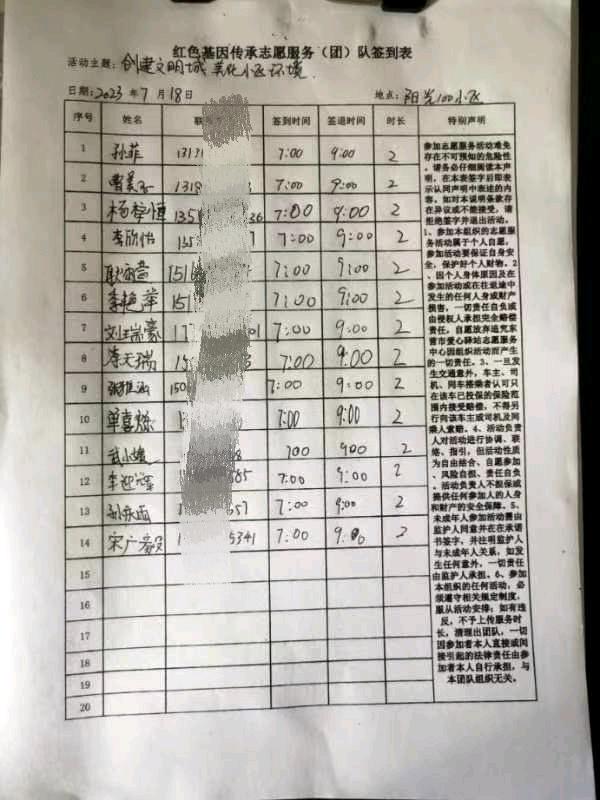 红色基因传承志愿服务（团）队签到表
活动主题：创建文明城 美化小区环境
日期：2023年7月18日 地点：阳光100小区
序号 姓名 联 签到时间 签退时间 时长 特别声明
1 孙菲 1313 7:00 9:00 2
2 1318 3 7:00 9:00 2
3 杨 恒 135 36 7:00 9:00 2
4 李欣怡 135 7 7:00 9:00 2
5 151 7:00 9:00 2
6 李艳萍 151 7:00 9:00 2
7 刘瑞豪 17 01 7:00 9:00 2
8 李天瑞 15 3 7:00 9:00 2
9 张雅涵 150 7:00 9:00 2
10 单喜 1 7:00 9:00 2
11 武小媛 8 700 900 2
12 李迎 1 585 7:00 9:00 2
13 孙 1 557 7:00 9:00 2
14 宋广毅 1 5341 7:00 9:00 2
15
16
17
18
19
20
参加志愿服务活动难免
存在不可预知的危险性
，请务必仔细阅读本声
明，在本表签字后即表
示认同声明中表述的内
容，如对本说明条款存
在异议或不能接受，请
拒绝签字并退出活动。
1、参加本组织的志愿服
务活动属于个人自愿，
参加活动要保证自身安
全，保护好个人财物。2
、因个人身体原因及在参
加活动或在往返途中
发生的任何人身或财产
损害，一切责任自负或
由侵权人承担完全赔偿
责任，自愿放弃追究东
营市爱心驿站志愿服务
中心因组织活动而产生
的一切责任。3、一旦发
生交通意外，车主、司
机、同车搭乘者认可只
在该车已投保的保险范
围内接受赔偿，不得另
行向该车主或司机及同
乘人索赔。4、活动负责
人对活动进行协调、联
络、指引，但活动性质
为自由结合、自愿参加
、风险自担、责任自负
。活动负责人不担保或
提供任何参加人的人身
和财产的安全保障。5、
未成年人参加活动需由
监护人同意并在在承诺
书签字，并注明监护人
与未成年人关系，如发
生任何意外，一切责任
由监护人承担。6、参加
本组织的任何活动，必
须遵守相关规定制度，
服从活动安排；如有违
反，不予上传服务时
长，清理出团队，一切
因参加者本人直接或间
接引起的法律责任由参
加者本人自行承担，与
本团队组织无关。